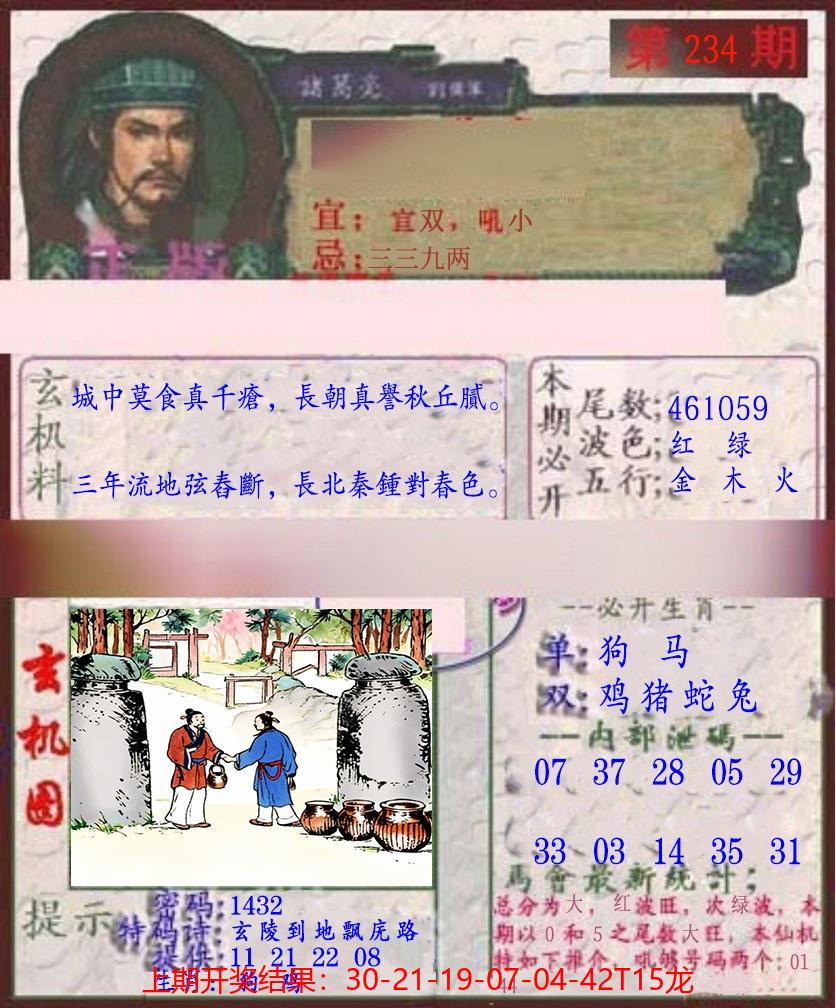 第 234 期
諸葛亮
宜：宜双，吼小
忌：三三九两
正版
玄机料
城中莫食真千瘡，長朝真譽秋丘膩。
三年流地弦舂斷，長北秦鍾對春色。
本期必开
尾数；461059
波色；红 绿
五行；金 木 火
--必开生肖--
单：狗 马
双：鸡猪蛇兔
一一内部泄碼一一
07 37 28 05 29
33 03 14 35 31
玄机图
提示
密码：1432
特码诗：玄陵到地飘庑路
提供：11 21 22 08
馬會最新统計；
总分为大，红波旺，次绿波，本
期以0和5之尾数大旺，本仙机
特如下推介，吼够号码两个：01
44
上期开奖结果：30-21-19-07-04-42T15龙